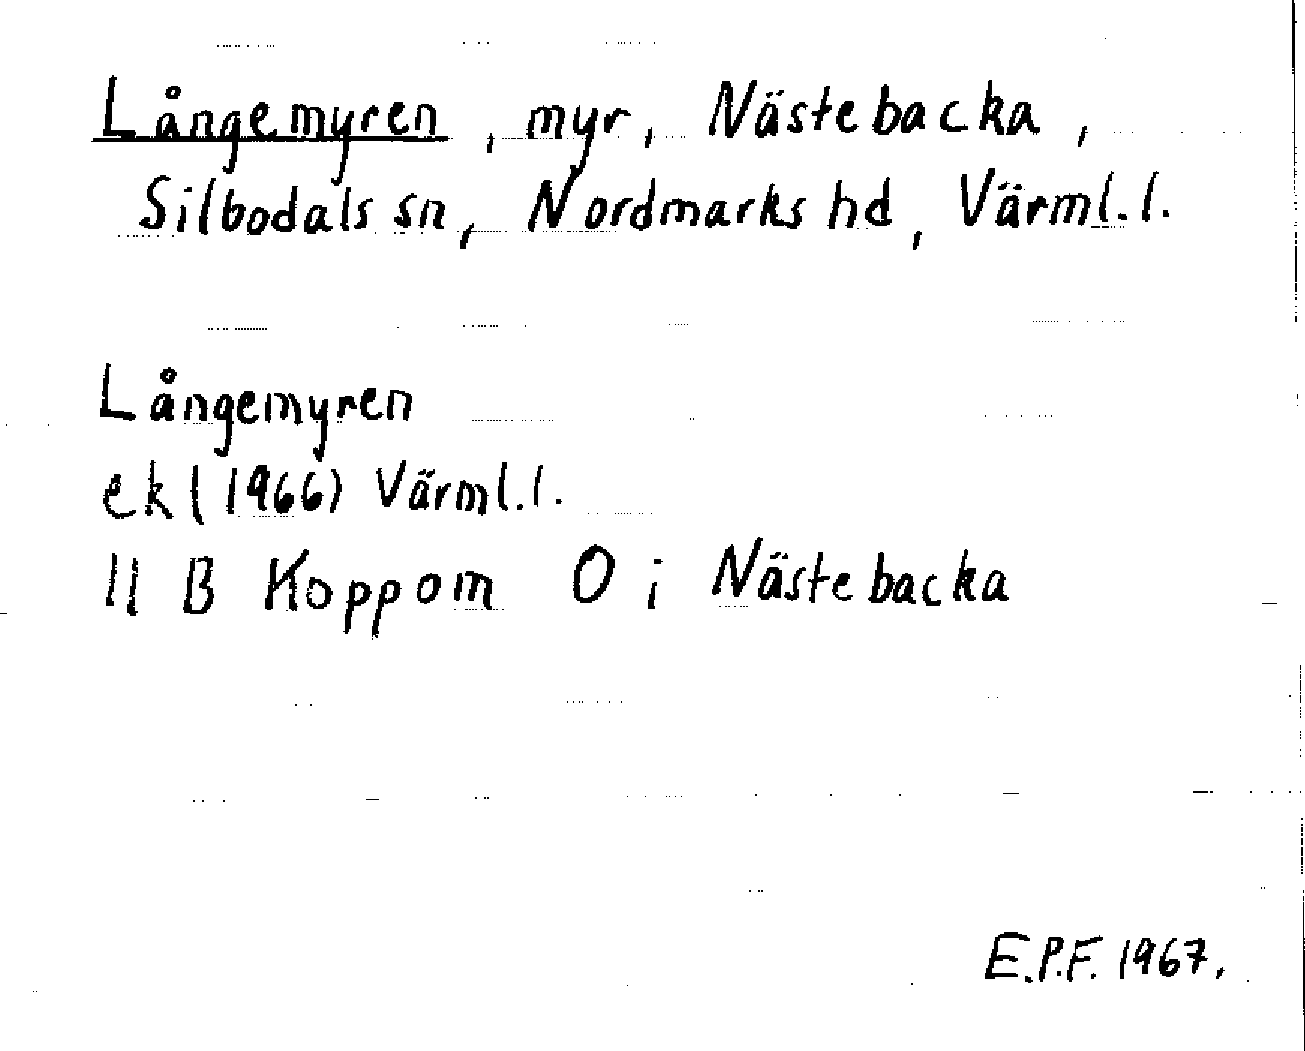 Långemyren, myr, Nästebacka,
Silbodals sn, Nordmarks hd, Värml.l.
Långemyren
ek (1966) Värml.l.
11 B Koppom O i Nästebacka
E.P.F. 1967.